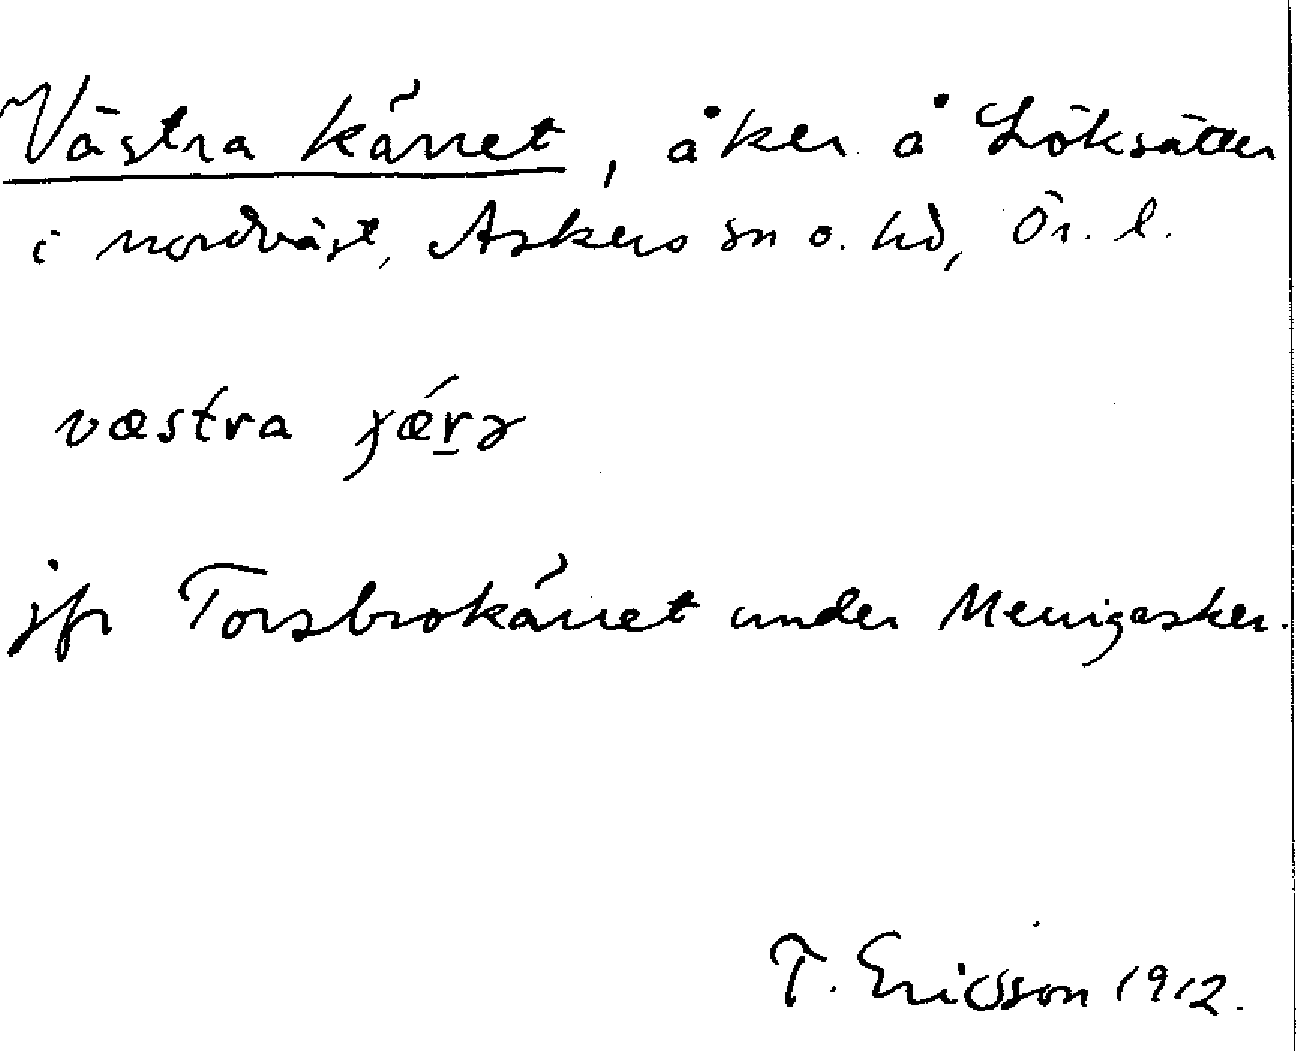 Västra kärret, åker å Löksätter
i nordväst, Askers sn o. hd, Ör. l.
væstra ɟǽrə
jfr Torsbrokärret under Menigasker.
T. Ericsson 1912.